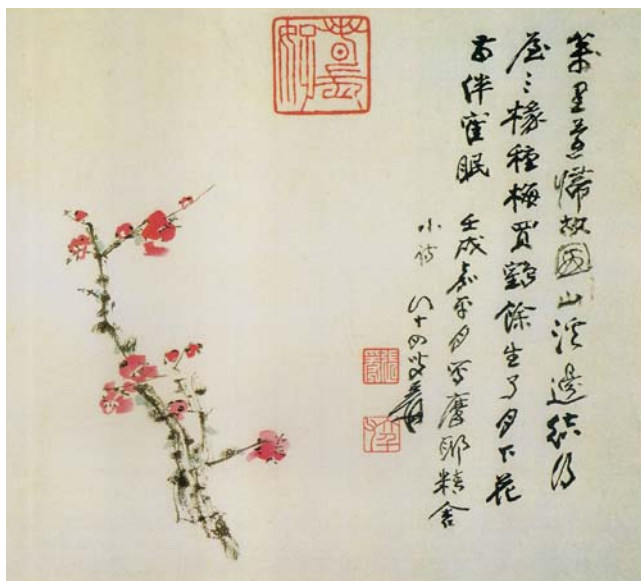 萬里歸故國山溪邊結得
屋三椽種梅買鶴餘生了月下花
前伴鶴眠 壬戌嘉平月寫摩耶精舍
小詩 八十四叟爰